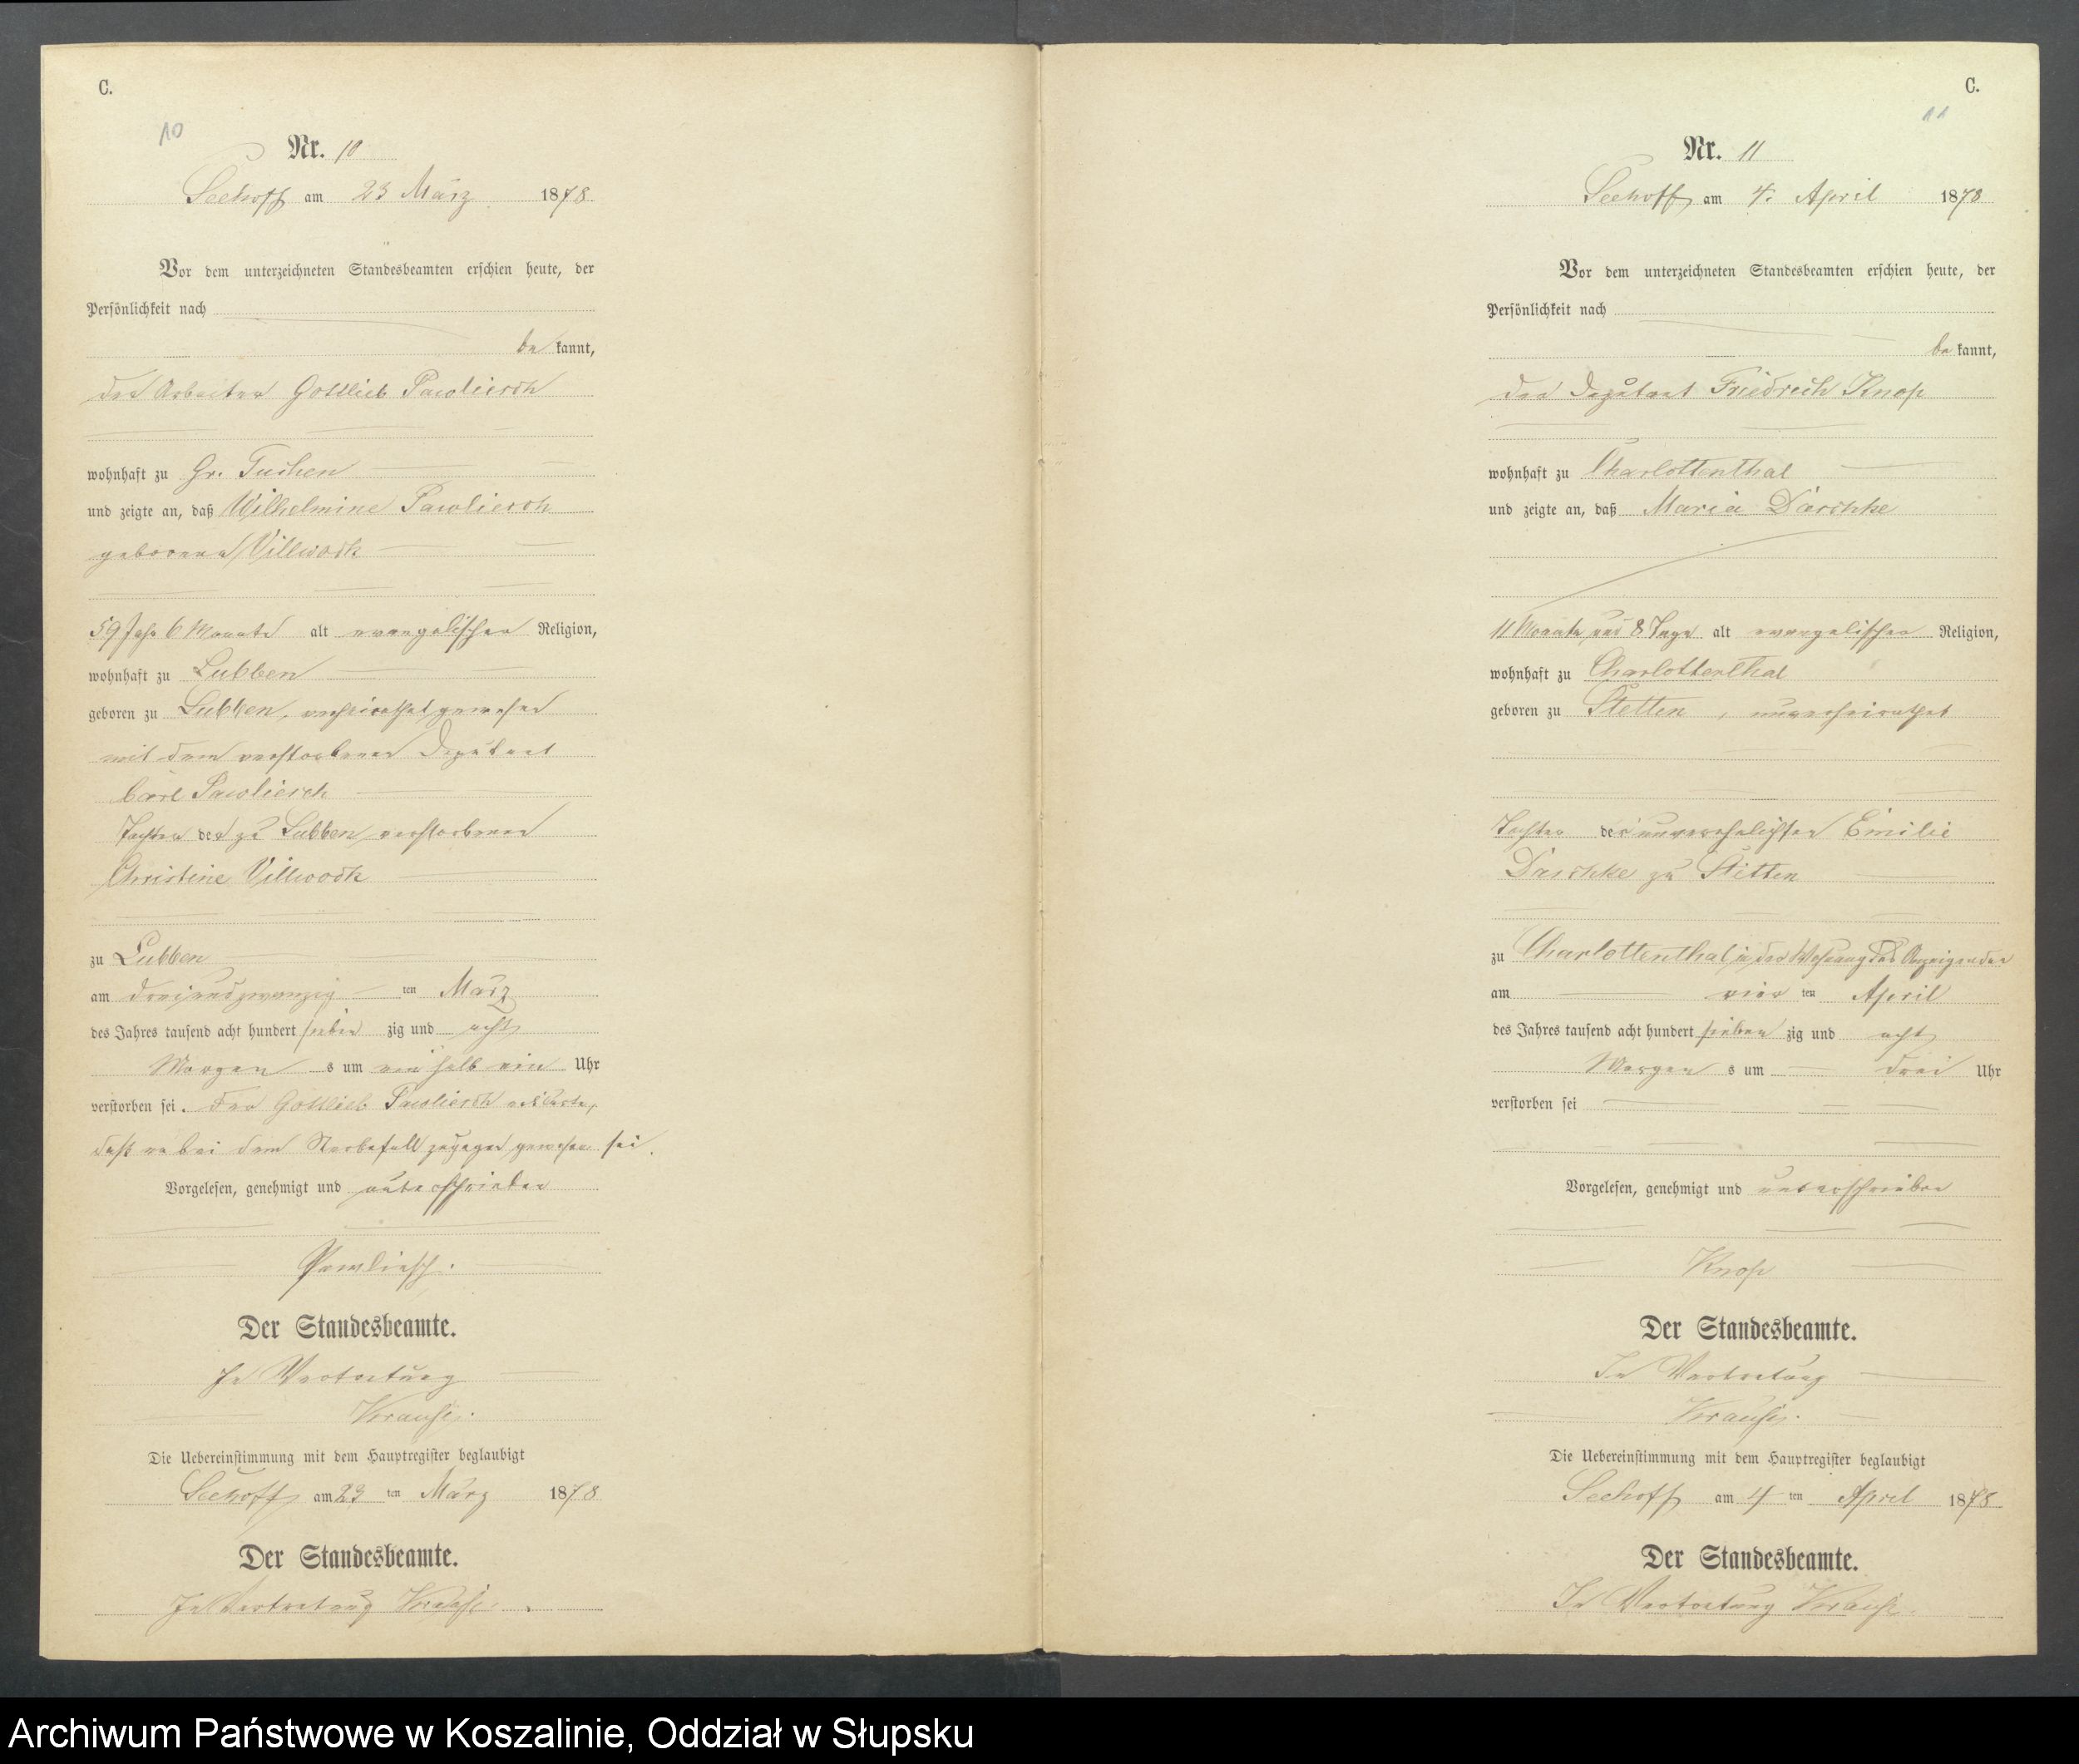 C.
10
Nr. 10
Seehoff am 23 März 1878
Vor dem unterzeichneten Standesbeamten erschien heute, der
Persönlichkeit nach
be kannt,
der Arbeiter Gottlieb Pawliesch
wohnhaft zu Gr. Tuchen
und zeigte an, daß Wilhelmine Pawliesch
geborene Villwock
59 Jahr 6 Monate alt evangelischer Religion,
wohnhaft zu Lubben
geboren zu Lubben, verheirathet gewesen
mit dem verstorbenen Deputant
Carl Pawliesch
Tochter der zu Lubben verstorbenen
Christine Villwock
zu Lubben
am dreiundzwanzig ten März
des Jahres tausend acht hundert sieben zig und acht
Morgen s um ein halb ein Uhr
verstorben sei. Der Gottlieb Pawliesch erklärte,
daß er bei dem Sterbefall zugegen gewesen sei.
Vorgelesen, genehmigt und unterschrieben
Pawliesch.
Der Standesbeamte.
In Vertretung
Krause.
Die Uebereinstimmung mit dem Hauptregister beglaubigt
Seehoff am 23 ten März 1878
Der Standesbeamte.
In Vertretung Krause.
C.
11
Nr. 11
Seehoff am 4. April 1878
Vor dem unterzeichneten Standesbeamten erschien heute, der
Persönlichkeit nach
be kannt,
der Deputant Friedrich Knop
wohnhaft zu Charlottenthal
und zeigte an, daß Maria Daschke
11 Monate und 8 Tage alt evangelischer Religion,
wohnhaft zu Charlottenthal
geboren zu Stetten, unverheirathet
Tochter der unverehelichten Emilie
Daschke zu Stetten
zu Charlottenthal in der Wohnung des Anzeigenden
am vier ten April
des Jahres tausend acht hundert sieben zig und acht
Morgen s um drei Uhr
verstorben sei
Vorgelesen, genehmigt und unterschrieben
Knop
Der Standesbeamte.
In Vertretung
Krause.
Die Uebereinstimmung mit dem Hauptregister beglaubigt
Seehoff am 4 ten April 1878
Der Standesbeamte.
In Vertretung Krause.
Archiwum Państwowe w Koszalinie, Oddział w Słupsku